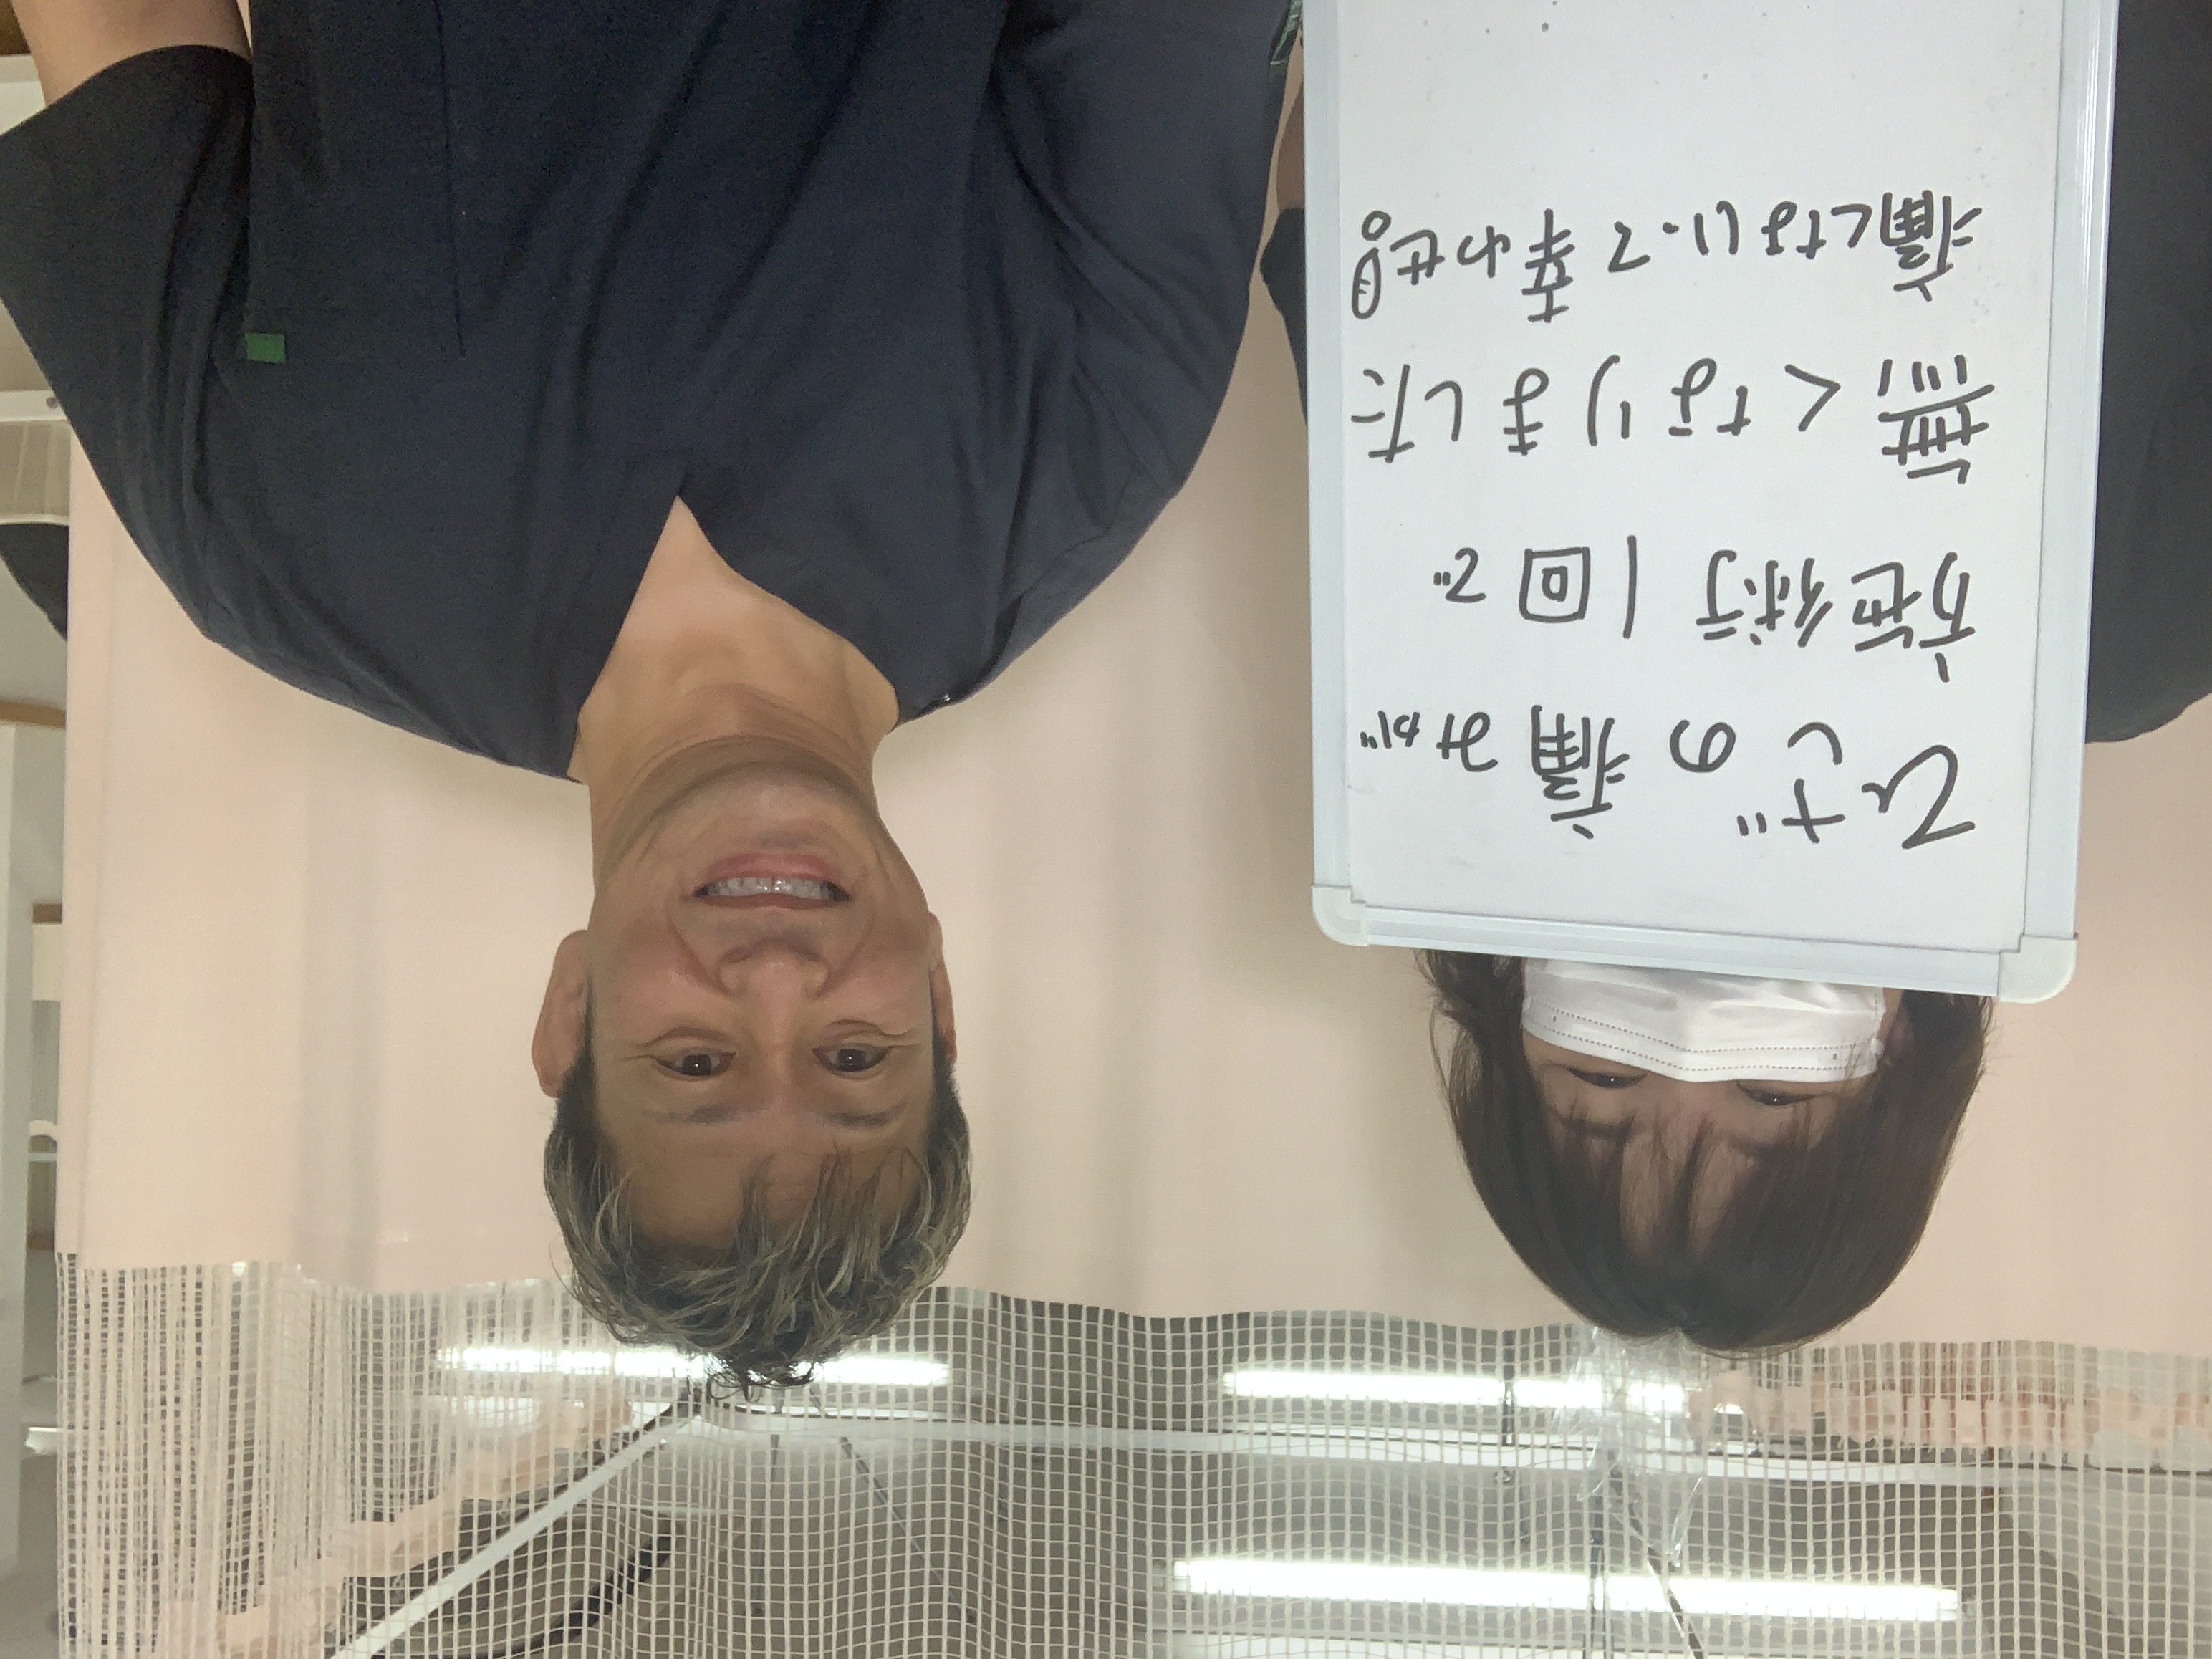 ひざの痛みが
施術1回で
無くなりました
痛くないって幸わせ!!